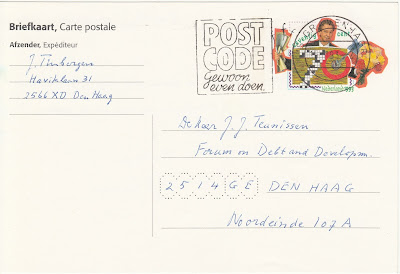 Briefkaart, Carte postale
Afzender, Expéditeur
J. Tinbergen
Haviklaan 31
2566 XD Den Haag
POST
CODE
Gewoon
even doen.
'S-GRAVENHAGE
70
Nederland
De heer J. J. Teunissen
Forum on Debt and Developm.
2514 GE DEN HAAG
Noordeinde 107 A